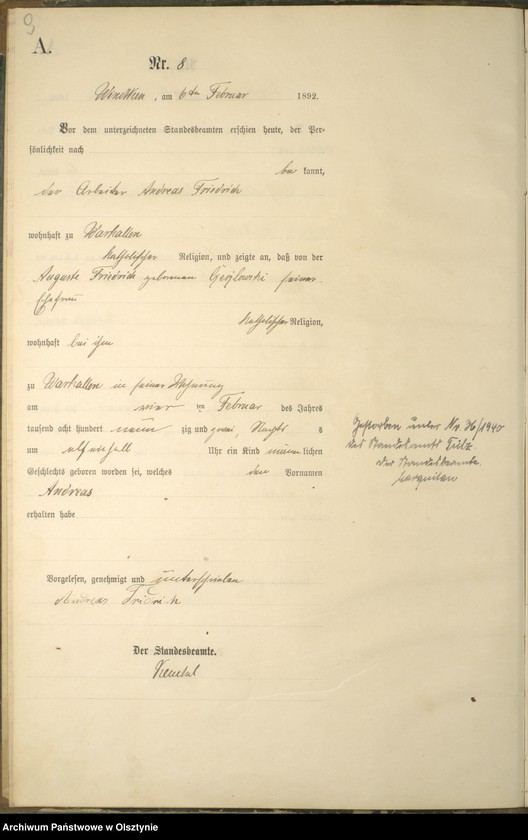 A.
Nr. 8
Windtken, am 6ten Februar 1892.
Vor dem unterzeichneten Standesbeamten erschien heute, der Per-
sönlichkeit nach
be kannt,
der Arbeiter Andreas Friedrich
wohnhaft zu Warkallen
katholischer Religion, und zeigte an, daß von der
Auguste Friedrich geborenen seiner
Ehefrau
katholischer Religion,
wohnhaft bei ihm
zu Warkallen in seiner Wohnung
am vier ten Februar des Jahres
tausend acht hundert neun zig und zwei, Nachts s
um elf einhalb Uhr ein Kind männ lichen
Geschlechts geboren worden sei, welches den Vornamen
Andreas
erhalten habe
Vorgelesen, genehmigt und unterschrieben
Andreas Fridrich
Der Standesbeamte.
Gestorben unter Nr. 36/1940
des Standesamts
Der Standesbeamte.
Archiwum Państwowe w Olsztynie